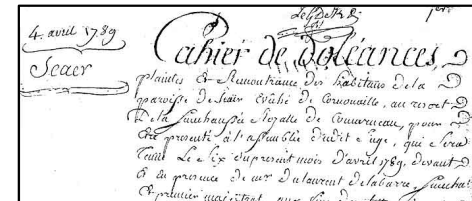 4. avril 1789
Scaer
1ere
Cahier de Doléances,
plaintes Et Remontrance des habitans dela
paroisse de Scair Evêché de Cornouaille, au ressort
De la Senechaussée Royalle de Concarneau, pour
Etre presenté à l'assemblée dudit siege, qui sera
Tenue Le Six du present mois d'avril 1789, devant
& en presence de mr du laurent delabarre, Senechal
& premier magistrat